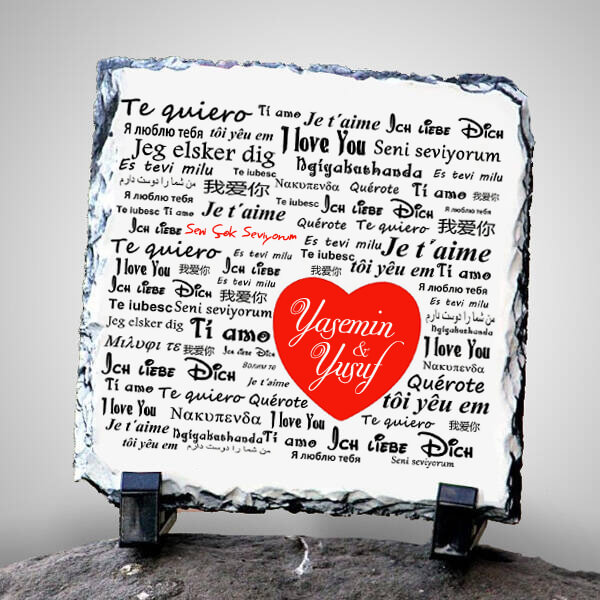 Te quiero Ti amo Je t'aime Ich liebe Dich
Я люблю тебя tôi yêu em I love You Seni seviyorum
Jeg elsker dig Ngiyakathanda Es tevi milu
Es tevi milu Te iubesc 我爱你 Nακυπενδα Quérote Ti amo 我爱你
من شما را دوست دارم
Я люблю тебя Te iubesc Ich liebe Dich Я люблю тебя
Te iubesc Ti amo Je t'aime Quérote Te quiero 我爱你
Ich liebe Seni Çok Seviyorum Es tevi milu Je t'aime
Te quiero Es tevi milu Te iubesc tôi yêu em Ti amo
I love You 我爱你 Ich liebe 我爱你
Es tevi milu
Ich liebe Dich 我爱你 Es tevi milu
Te iubesc Seni seviyorum من شما را دوست دارم
Jeg elsker dig Ti amo Yasemin Ngiyakathanda
Μιλυφι τε 我爱你 Ich liebe Dich & I love You
Ich liebe Dich Yusuf Nακυπενδα
Je t'aime Quérote
Ti amo Te quiero Quérote tôi yêu em
I love You Nακυπενδα I love You Te quiero 我爱你
Je t'aime Ngiyakathanda Ti amo Ich liebe Dich
tôi yêu em من شما را دوست دارم Я люблю тебя Seni seviyorum